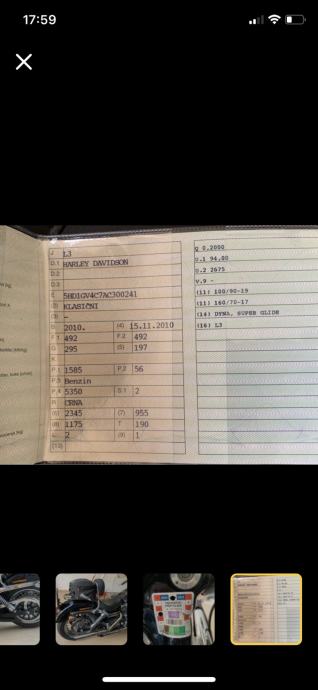 17:59
J L3
D.1 HARLEY DAVIDSON
D.2
D.3
E 5HD1GV4C7AC300241
(2) KLASIČNI
(3) -
B 2010. (4) 15.11.2010
F.1 492 F.2 492
G 295 (5) 197
K
P.1 1585 P.2 56
P.3 Benzin
P.4 5350 S.1 2
R CRNA
(6) 2345 (7) 955
(8) 1175 T 190
L 2 (9) 1
(10)
Q 0.2000
U.1 94,00
U.2 2675
V.9 -
(11) 100/90-19
(11) 160/70-17
(14) DYNA, SUPER GLIDE
(16) L3